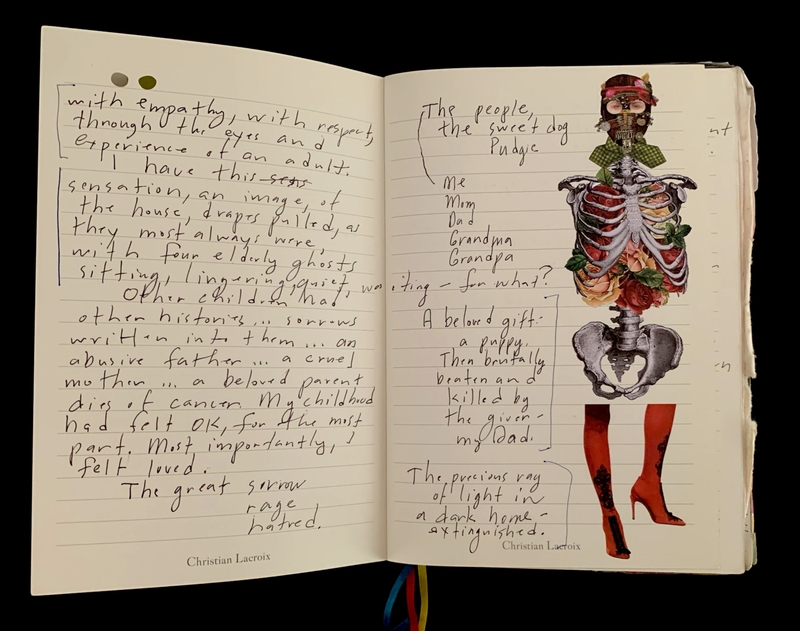 with empathy, with respect,
through the eyes and
experience of an adult.
I have this sens
sensation, an image, of
the house, drapes pulled, as
they most always were,
with four elderly ghosts
sitting, lingering, quiet, waiting – for what?
Other children had
other histories ... sorrows
written into them ... an
abusive father ... a cruel
mother ... a beloved parent
dies of cancer. My childhood
had felt OK, for the most
part. Most importantly, I
felt loved.
The great sorrow
rage
hatred.
Christian Lacroix
The people,
the sweet dog
Pudgie
Me
Mom
Dad
Grandma
Grandpa
A beloved gift –
a puppy.
Then brutally
beaten and
killed by
the giver –
my Dad.
The precious ray
of light in
a dark home –
extinguished.
Christian Lacroix
nt
n